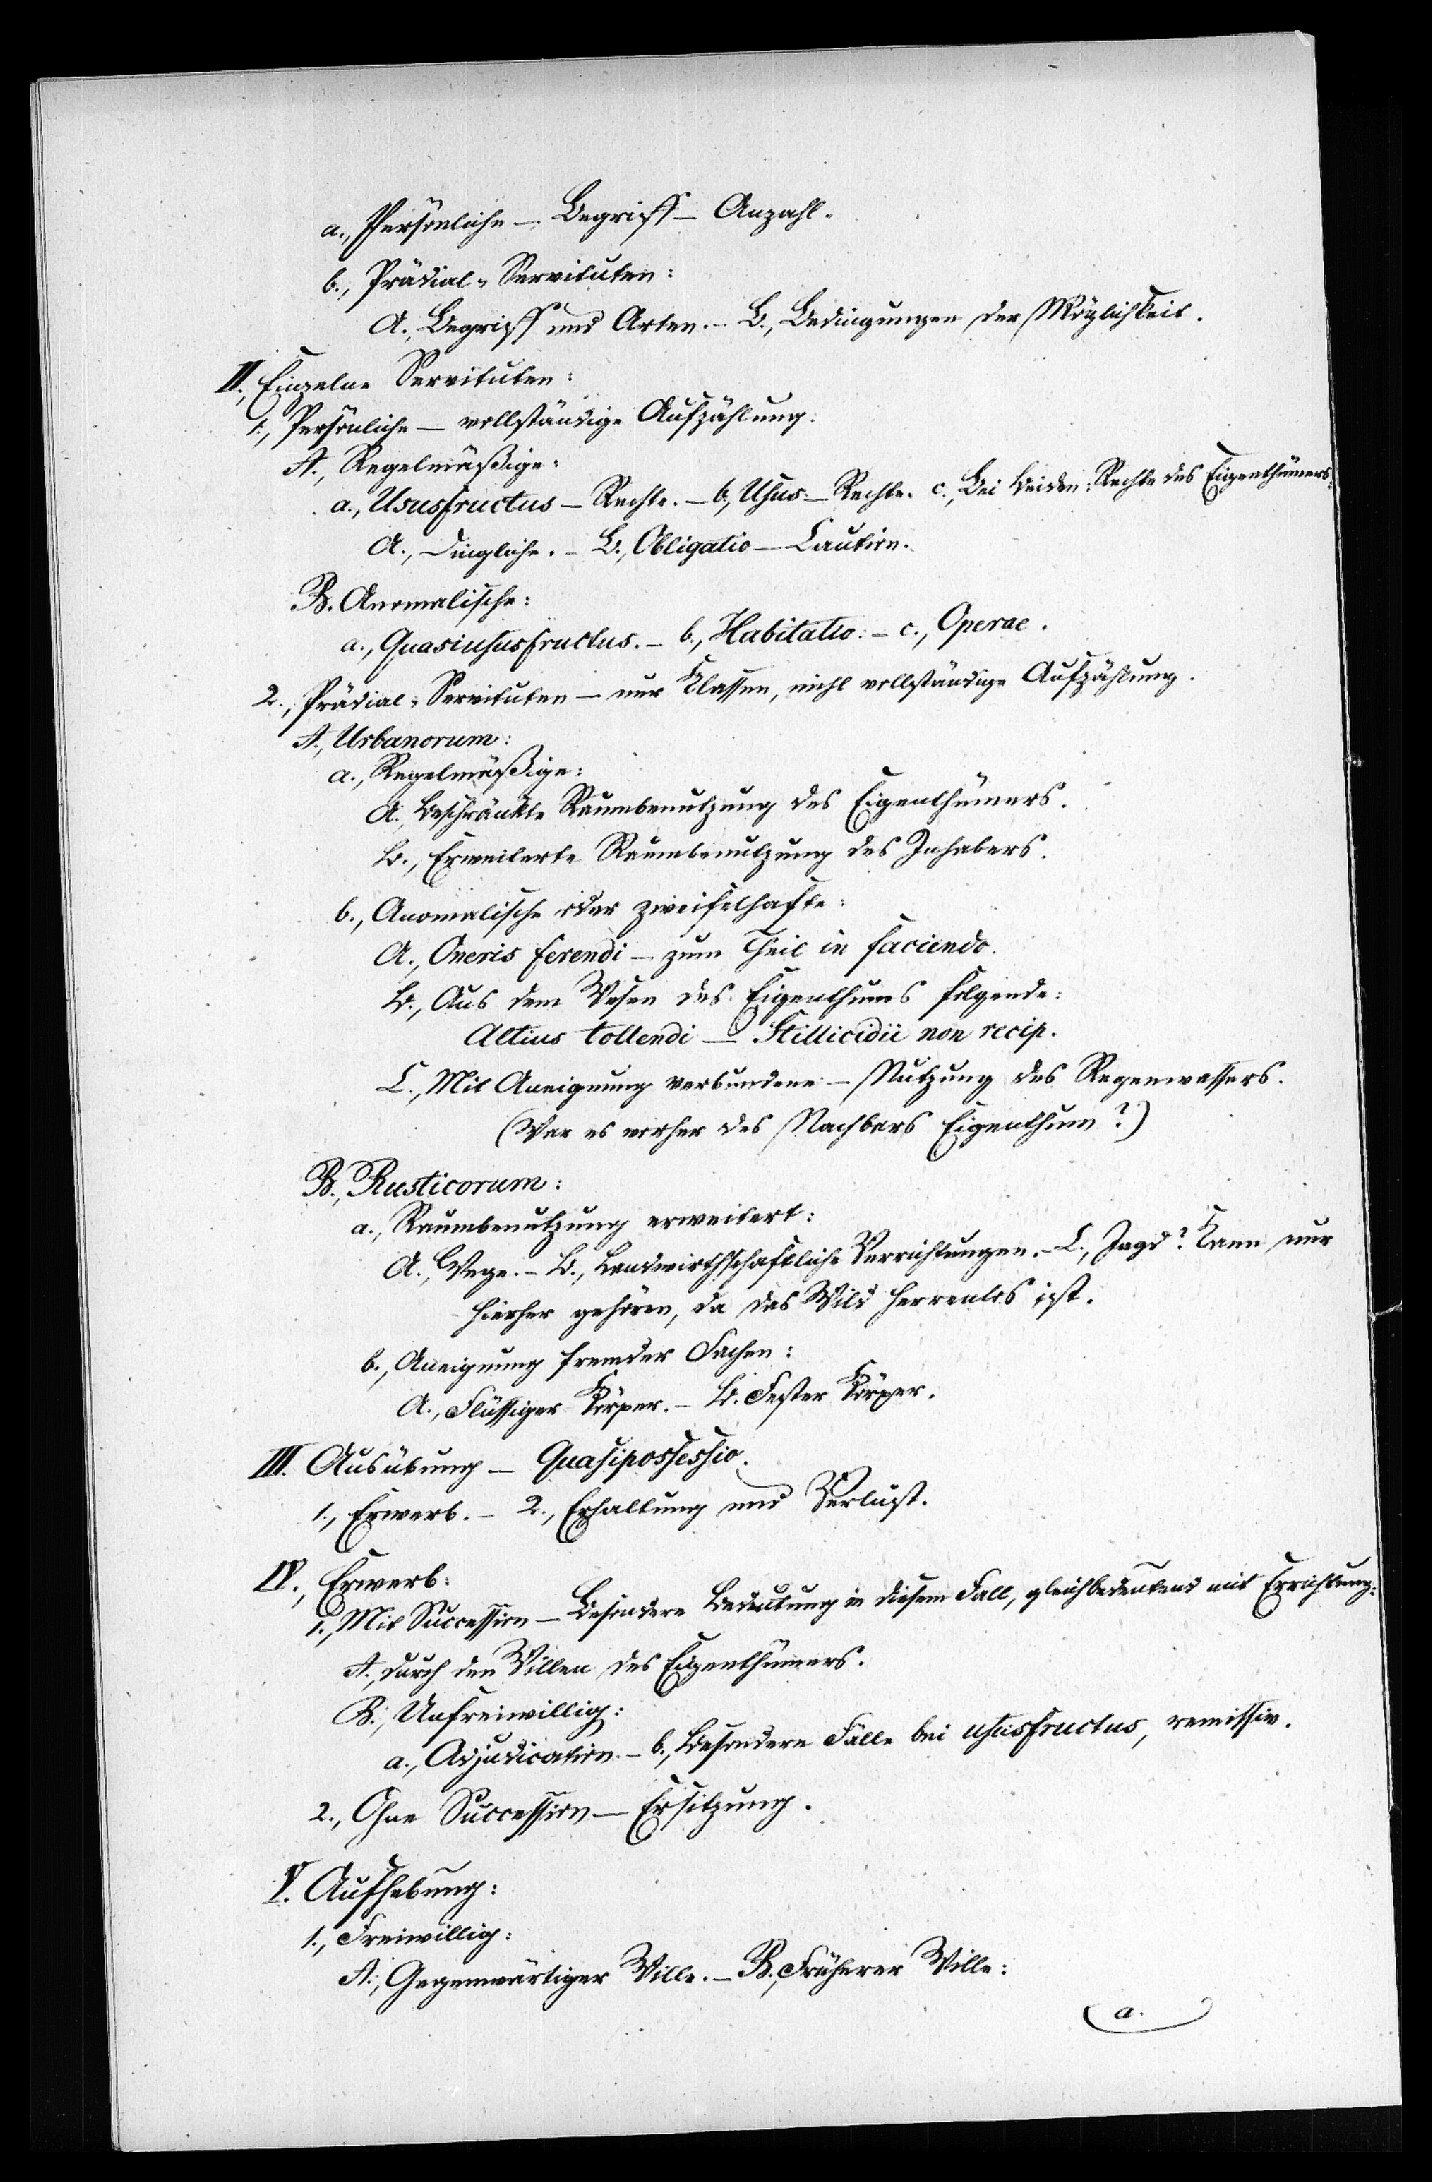 a., Persönliche — Begriff — Anzahl.
b., Prädial-Servituten:
A., Begriff und Arten. — B., Bedingungen der Möglichkeit.
II., Einzelne Servituten:
1., Persönliche — vollständige Aufzählung.
A., Regelmäßige:
a., Ususfructus — Rechte. — b., Usus — Rechte. c., Bei beiden: Rechte des Eigenthümers:
A., Dingliche. — B., Obligatio — Caution.
B. Anomalische:
a., Quasiususfructus. — b., Habitatio. — c., Operae.
2., Prädial-Servituten — nur Klassen, nicht vollständige Aufzählung.
A., Urbanorum:
a., Regelmäßige:
A., Beschränkte Raumbenutzung des Eigenthümers.
B., Erweiterte Raumbenutzung des Inhabers.
b., Anomalische oder zweifelhafte:
A., Oneris ferendi — zum Theil in faciendo.
B., Aus dem Wesen des Eigenthums folgende:
Altius tollendi — Stillicidii non recip.
C., Mit Aneignung verbundene — Nutzung des Regenwassers.
(War es vorher des Nachbars Eigenthum?)
B., Rusticorum:
a., Raumbenutzung erweitert:
A., Wege. — B., Landwirthschaftliche Verrichtungen. — C., Jagd? Kann nur
hierher gehören, da das Wild herrenlos ist.
b., Aneignung fremder Sachen:
A., Flüssiger Körper. — B. Fester Körper.
III. Ausübung — Quasipossessio.
1., Erwerb. — 2., Erhaltung und Verlust.
IV., Erwerb:
1., Mit Succession — Besondere Bedeutung in diesem Fall, gleichbedeutend mit Errichtung:
A., durch den Willen des Eigenthümers.
B., Unfreiwillig:
a., Adjudication. — b., Besondere Fälle bei ususfructus, remissiv.
2., Ohne Succession — Ersitzung.
V. Aufhebung:
1., Freiwillig:
A., Gegenwärtiger Wille. — B., Früherer Wille:
a.